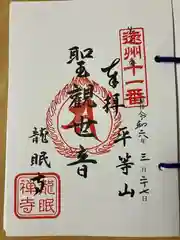 遠州十一番
奉拝
平等山
令和六年三月二十七日
聖観世音
龍眠寺
龍眠
禅寺